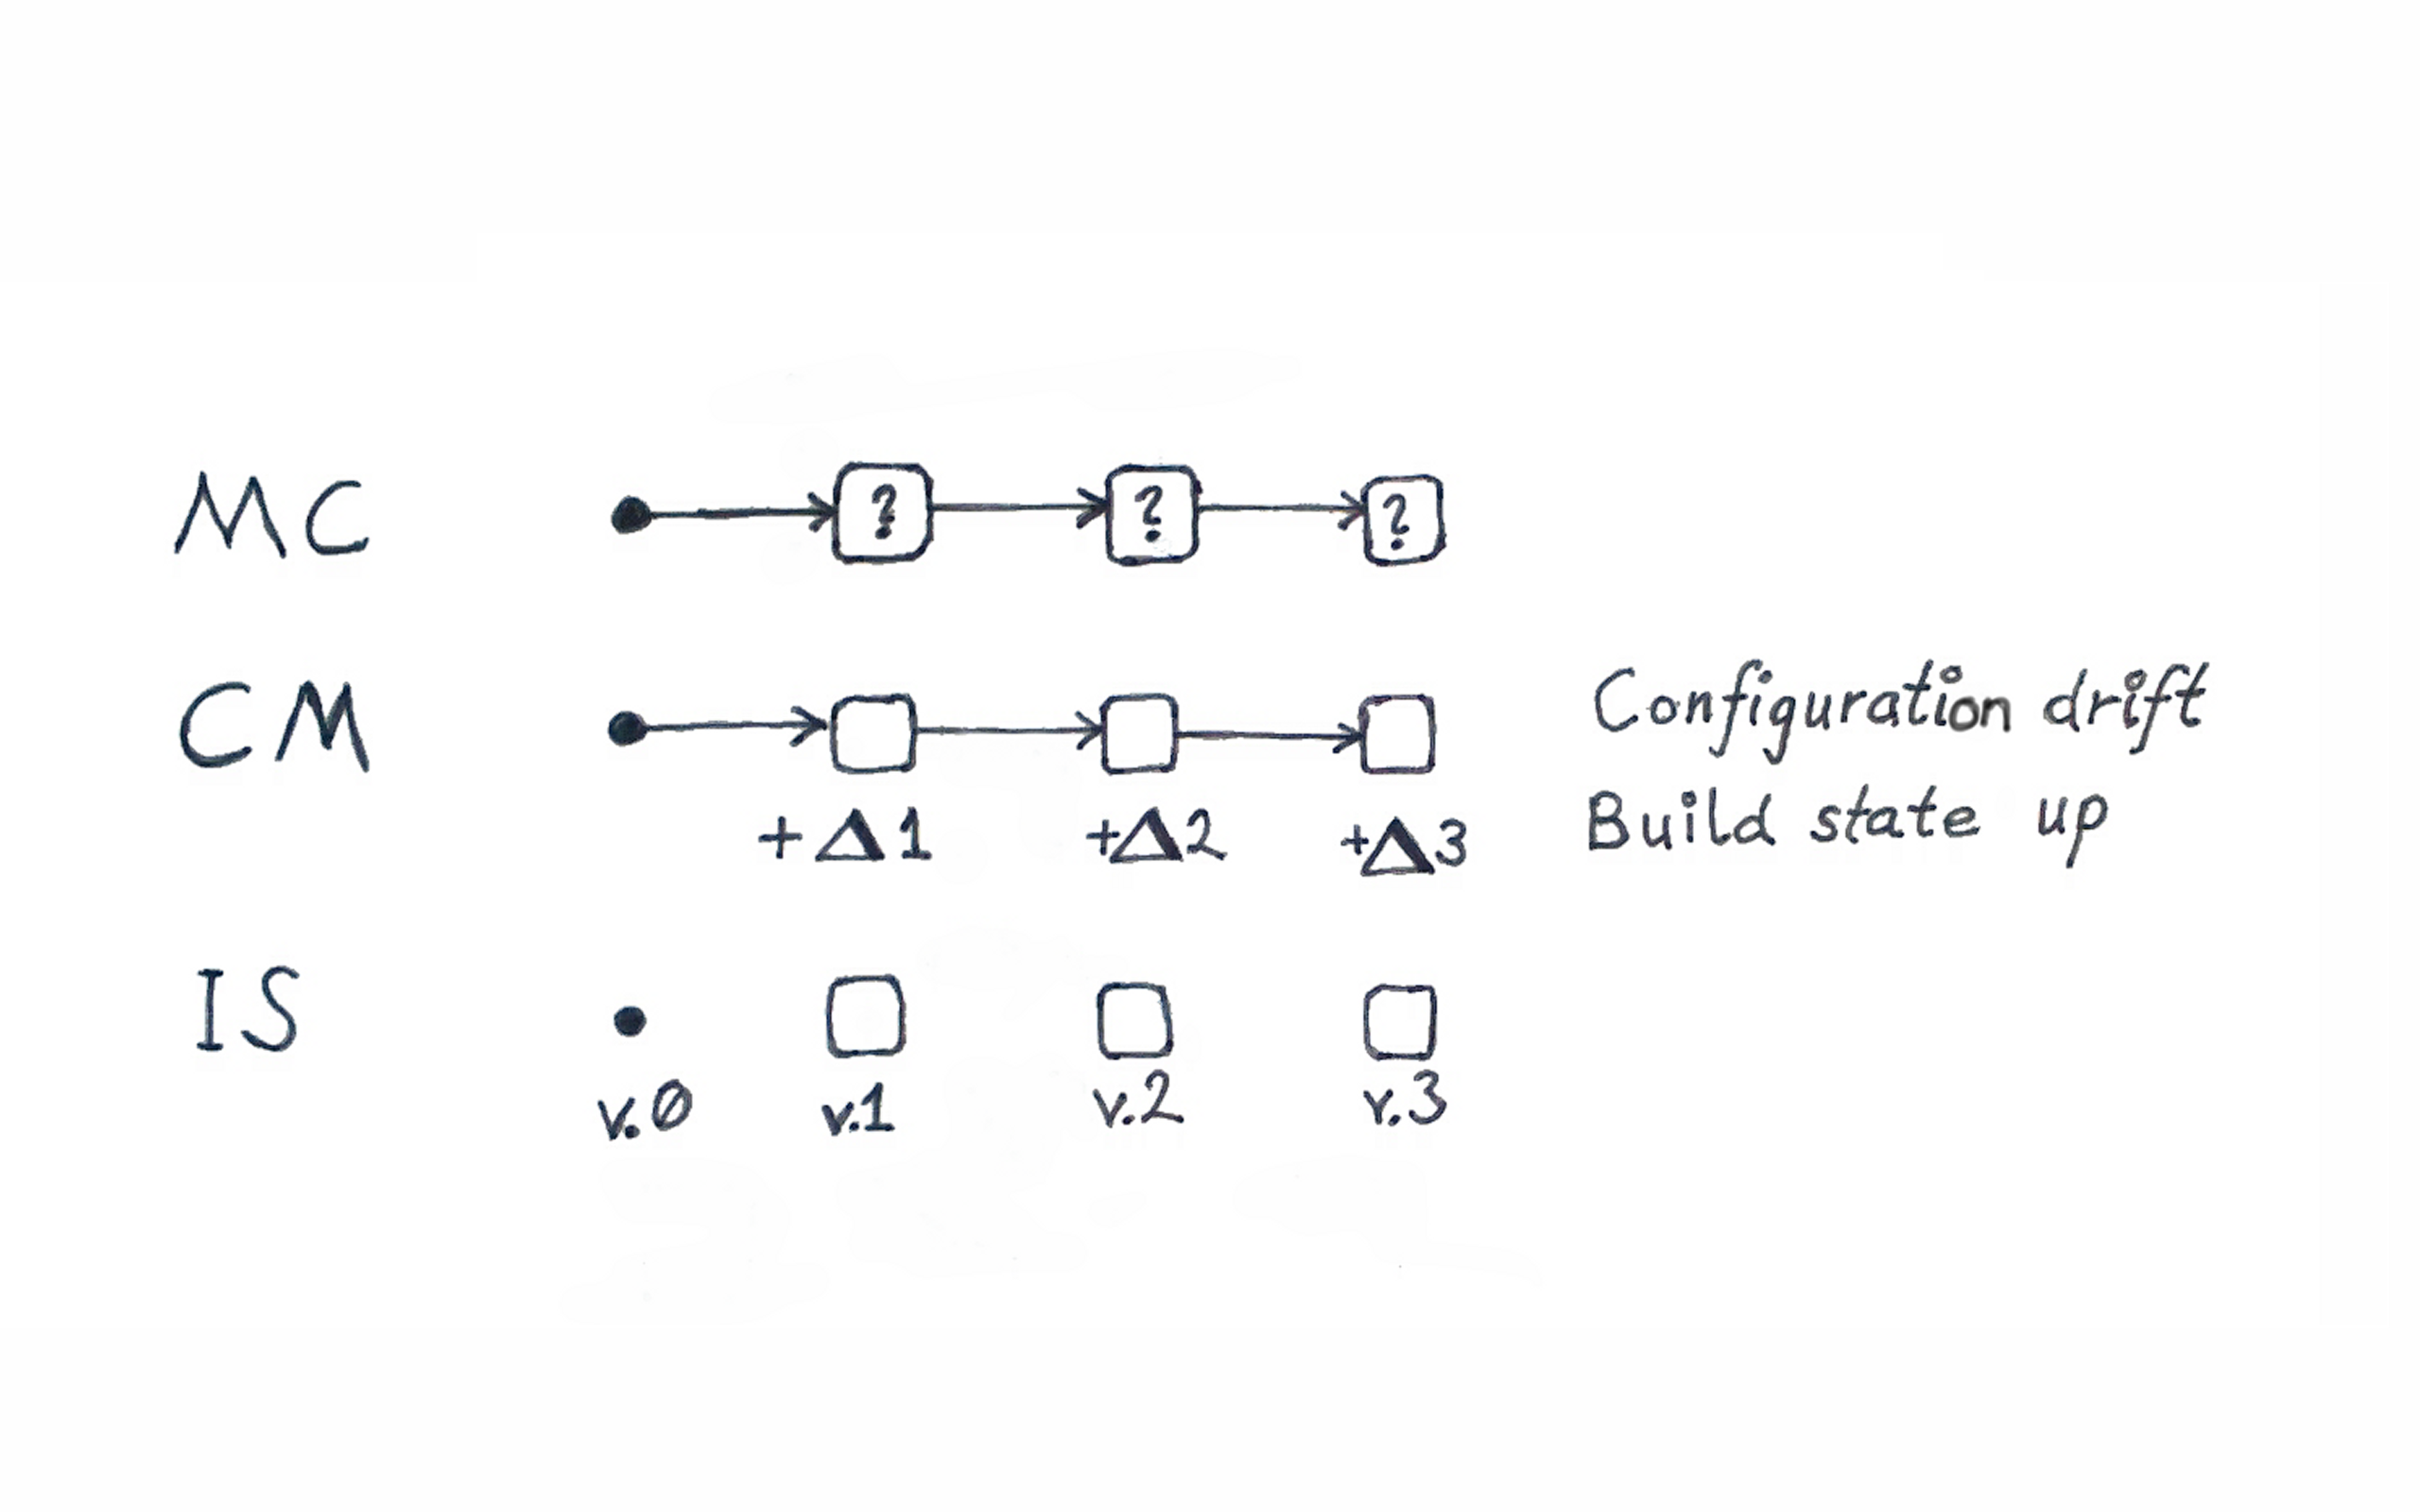 MC
? ? ?
CM
Configuration drift
+Δ1 +Δ2 +Δ3
Build state up
IS
v.0 v.1 v.2 v.3